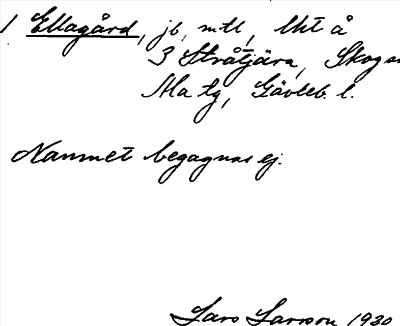 1 Ellagård, jb, mtl, lht å
3 Stråtjära, Skogs
Ma tg, Gävleb. l.
Namnet begagnas ej.
Lars Larsson 1930